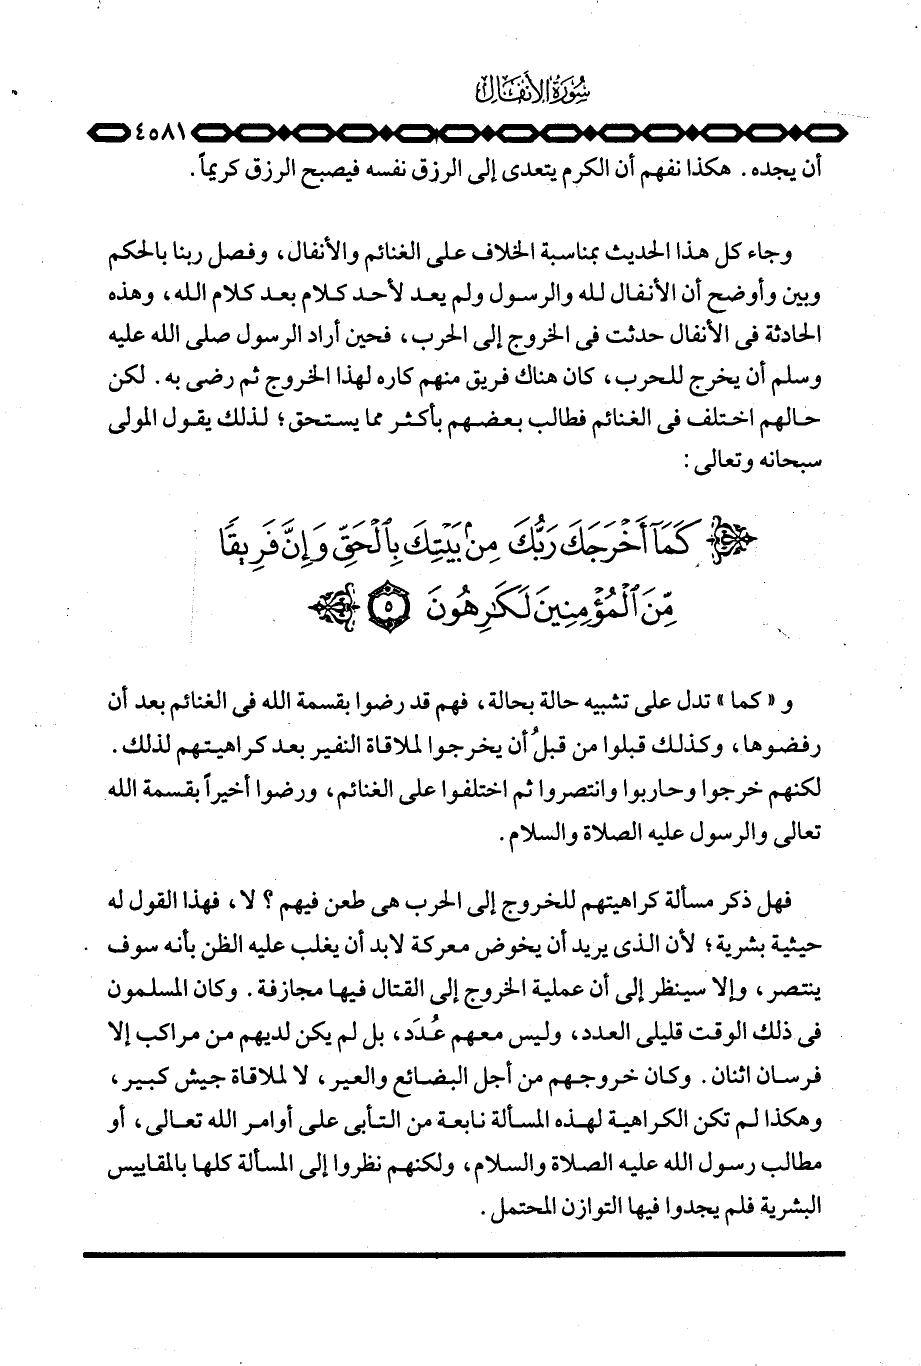 سُورَةُ الأَنفَال
٤٥٨١
أن يجده . هكذا نفهم أن الكرم يتعدى إلى الرزق نفسه فيصبح الرزق كريماً .
وجاء كل هذا الحديث بمناسبة الخلاف على الغنائم والأنفال ، وفصل ربنا بالحكم
وبين وأوضح أن الأنفال لله والرسول ولم يعد لأحد كلام بعد كلام الله ، وهذه
الحادثة فى الأنفال حدثت فى الخروج إلى الحرب ، فحين أراد الرسول صلى الله عليه
وسلم أن يخرج للحرب ، كان هناك فريق منهم كاره لهذا الخروج ثم رضى به . لكن
حالهم اختلف فى الغنائم فطالب بعضهم بأكثر مما يستحق ؛ لذلك يقول المولى
سبحانه وتعالى :
كَمَآ أَخْرَجَكَ رَبُّكَ مِنۢ بَيْتِكَ بِٱلْحَقِّ وَإِنَّ فَرِيقًا
مِّنَ ٱلْمُؤْمِنِينَ لَكَٰرِهُونَ ٥
و « كما » تدل على تشبيه حالة بحالة ، فهم قد رضوا بقسمة الله فى الغنائم بعد أن
رفضوها ، وكذلك قبلوا من قبلُ أن يخرجوا لملاقاة النفير بعد كراهيتهم لذلك .
لكنهم خرجوا وحاربوا وانتصروا ثم اختلفوا على الغنائم ، ورضوا أخيراً بقسمة الله
تعالى والرسول عليه الصلاة والسلام .
فهل ذكر مسألة كراهيتهم للخروج إلى الحرب هى طعن فيهم ؟ لا ، فهذا القول له
حيثية بشرية ؛ لأن الذى يريد أن يخوض معركة لابد أن يغلب عليه الظن بأنه سوف
ينتصر ، وإلا سينظر إلى أن عملية الخروج إلى القتال فيها مجازفة . وكان المسلمون
فى ذلك الوقت قليلى العدد ، وليس معهم عُدَد ، بل لم يكن لديهم من مراكب إلا
فرسان اثنان . وكان خروجهم من أجل البضائع والعير ، لا لملاقاة جيش كبير ،
وهكذا لم تكن الكراهية لهذه المسألة نابعة من التأبى على أوامر الله تعالى ، أو
مطالب رسول الله عليه الصلاة والسلام ، ولكنهم نظروا إلى المسألة كلها بالمقاييس
البشرية فلم يجدوا فيها التوازن المحتمل .